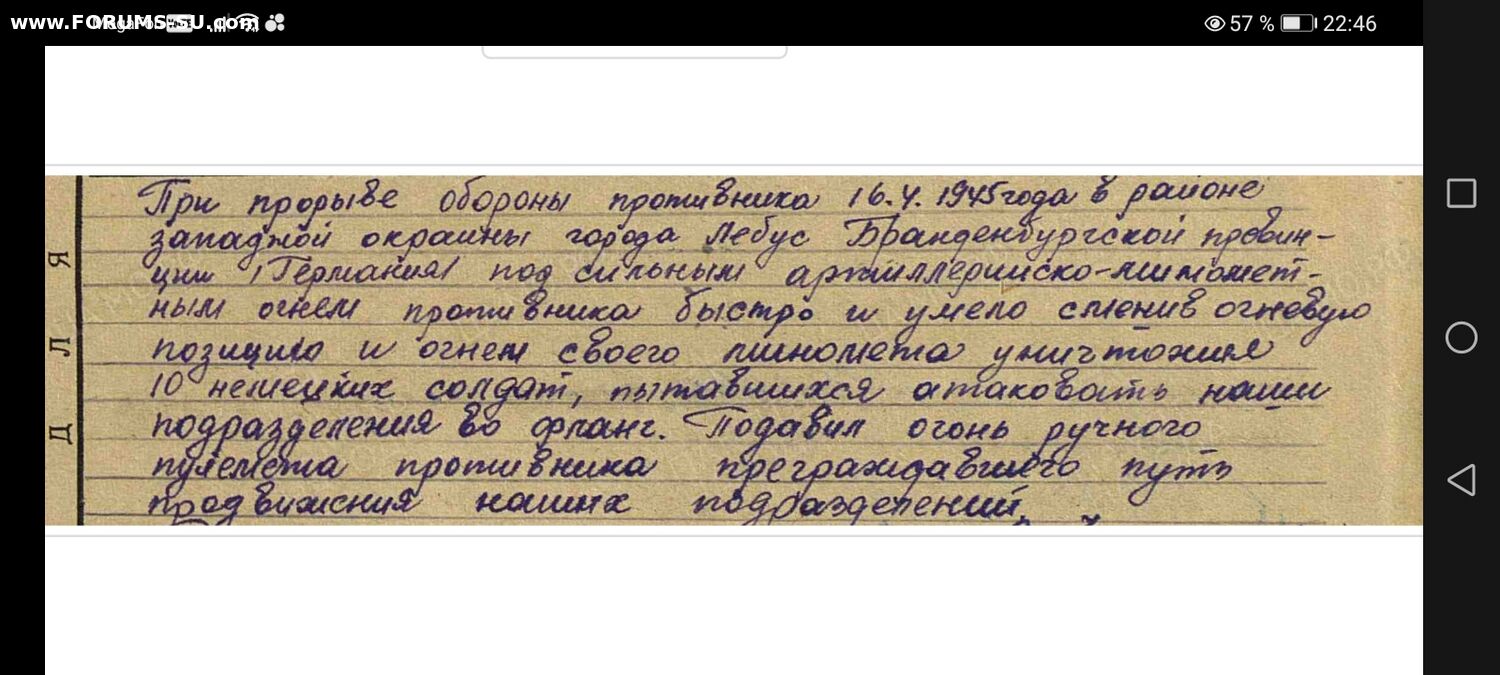 www.FORUMS-SU.com
57 % 22:46
При прорыве обороны противника 16.4.1945 года в районе
западной окраины города Лебус Бранденбургской провин-
ции /Германия/ под сильным артиллерийско-миномет-
ным огнем противника быстро и умело сменив огневую
позицию и огнем своего миномета уничтожил
10 немецких солдат, пытавшихся атаковать наши
подразделения во фланг. Подавил огонь ручного
пулемета противника преграждавшего путь
продвижения наших подразделений.
Д Л Я